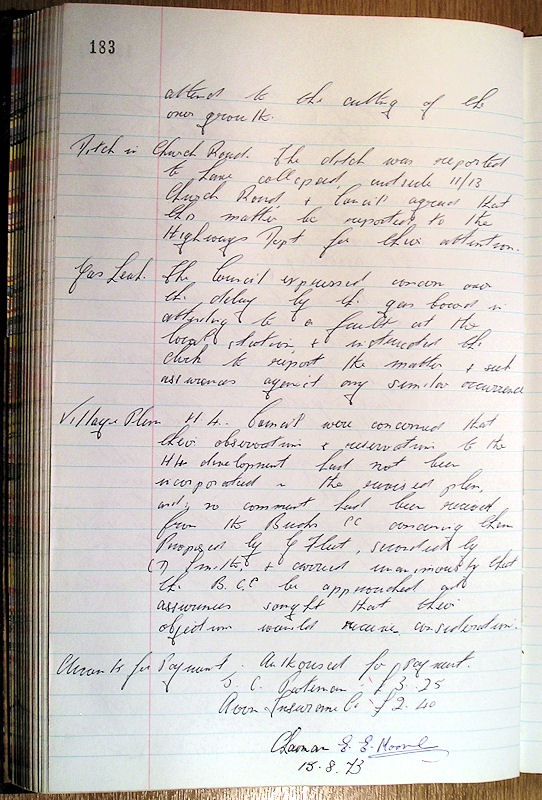 183
attend to the cutting of the
over growth.
Ditch in Church Road. The ditch was reported
to have collapsed, outside 11/13
Church Road & Council agreed that
this matter be reported to the
Highways Dept for their attention.
Gas Leak. The Council expressed concern over
the delay by the gas board in
attending to a fault at the
local station & instructed the
clerk to report the matter & seek
assurances against any similar occurrence
Village Plan H4. Council were concerned that
their observation & reservation to the
H4 development had not been
incorporated in the revised plan,
and no comment had been received
from the Bucks CC concerning them
Proposed by G Fleet, seconded by
& carried unanimously that
the B.C.C be approached and
assurances sought that their
objection would receive consideration.
Accounts for Payment. Authorised for payment.
S. C. Bateman £3.25
Avon Insurance Co £2.40
Chairman E. E.
15.8.73